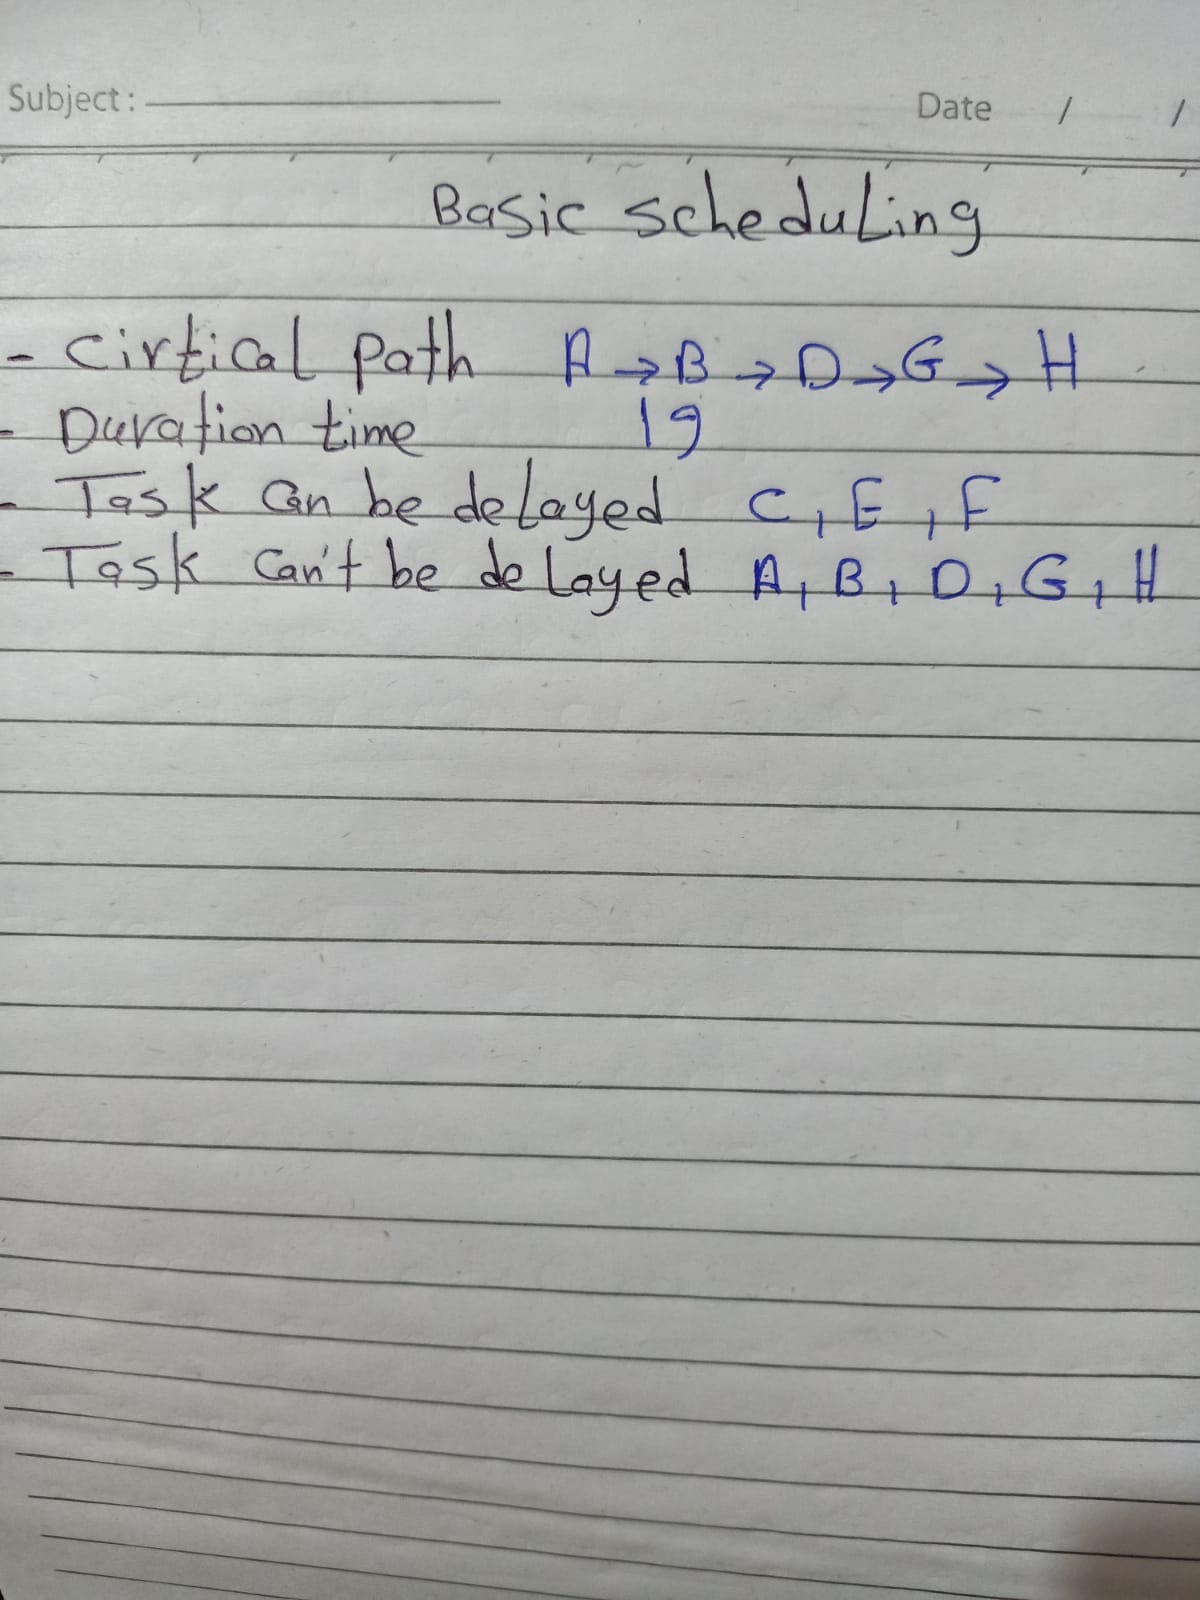 Subject:
Date / /
Basic scheduling
- Cirtical path A → B → D → G → H
- Duration time 19
- Task Can be delayed C, E, F
- Task Can't be delayed A, B, D, G, H